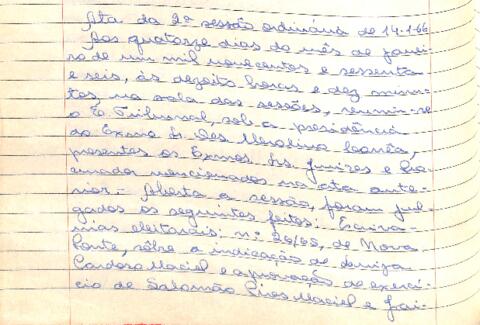 Ata da 2ª sessão ordinária de 14-1-66
Aos quatorze dias do mês de janei-
ro de um mil novecentos e sessenta
e seis, às dezoito horas e dez minu-
tos, na sala das sessões, reuniu-se
o E. Tribunal, sob a presidência
do Exmo Sr. Des. Merolino Corrêa,
presentes os Exmos. Srs. Juízes e Pro-
curador mencionados na ata ante-
rior. - Aberta a sessão, foram jul-
gados os seguintes feitos: Escriva-
nias eleitorais: nº 26/65, de Nova
Ponte, sôbre a indicação de Luiza
Cardoso Maciel e aprovação de exercí-
cio de Salomão Pires Maciel e